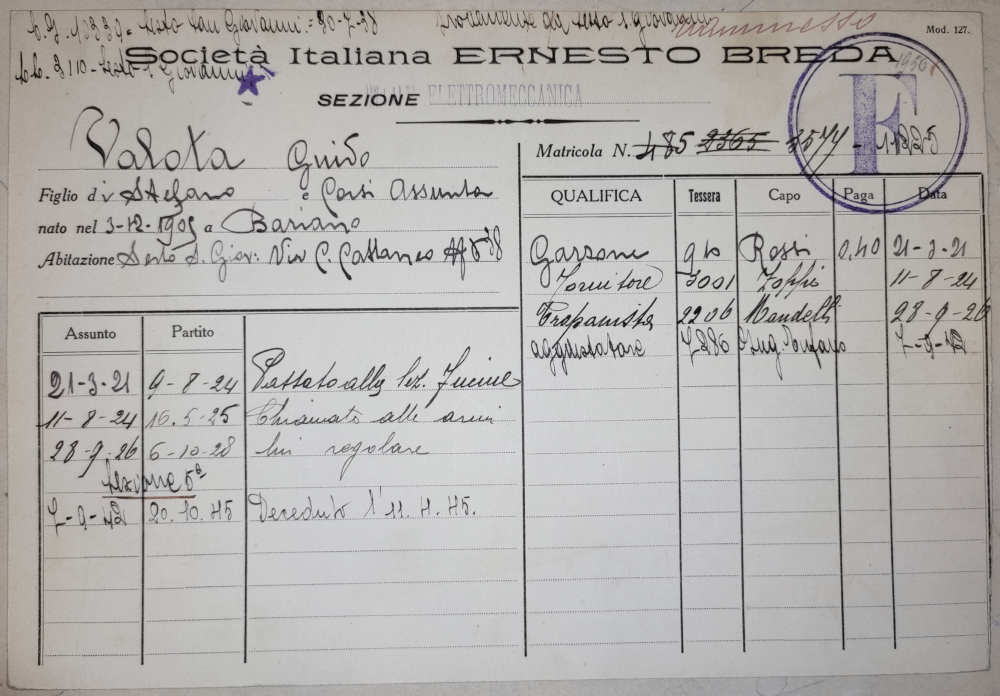 C.I. 13339 = Sesto San Giovanni = 30-7-38
Mod. 127.
Società Italiana ERNESTO BREDA
L.L. 3110 - Sesto S. Giovanni
SEZIONE ELETTROMECCANICA
F
Valota Guido
Matricola N. 485 2365 - 1225
Figlio di Stefano e Corsi Assunta
nato nel 3-12-1905 a Bariano
Abitazione Sesto S. Giov: Via C. Cattaneo 38
QUALIFICA Tessera Capo Paga Data
Garzone 910 Rossi 0,40 21-3-21
Tornitore 3001 Zoppi 11-8-24
Trapanista 2206 Mandelli 28-9-26
aggiustatore 7286 Ing. 7-9-42
Assunto Partito
21-3-21 9-8-24 Passato alla Sez. Fucine
11-8-24 16.5-25 Chiamato alle armi
28-9-26 6-10-28 regolare
Sezione 5ª
7-9-42 20.10.45 Deceduto l'11.4.45.